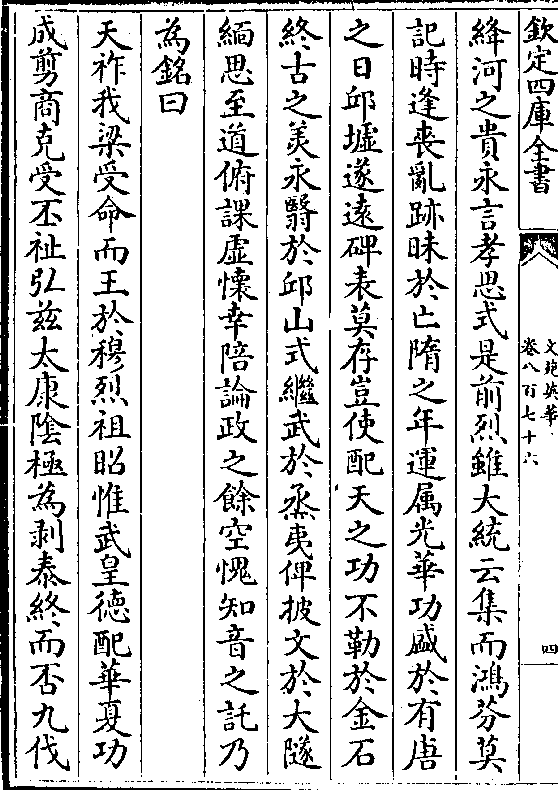 欽定四庫全書
文苑英華
卷八百七十六
四
絳河之貴永言孝思式是前烈雖大統云集而鴻芬莫
記時逢喪亂跡昧於亡隋之年運属光華功盛於有唐
之日邱墟遂遠碑表莫存豈使配天之功不勒於金石
終古之羙永翳於邱山式繼武於烝夷俾披文於大隧
緬思至道俯課虚懷幸陪論政之餘空愧知音之託乃
為銘曰
天祚我梁受命而王於穆烈祖昭惟武皇德配華夏功
成剪商克受丕祉弘兹太康陰極為剥泰終而否九伐